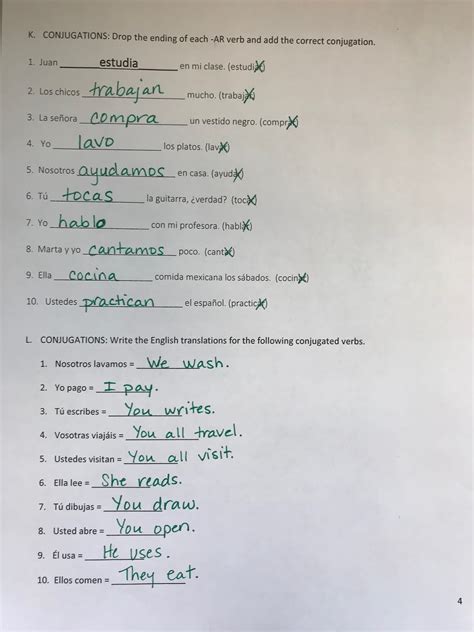 K. CONJUGATIONS: Drop the ending of each -AR verb and add the correct conjugation.
1. Juan estudia en mi clase. (estudiar)
2. Los chicos trabajan mucho. (trabajar)
3. La señora compra un vestido negro. (comprar)
4. Yo lavo los platos. (lavar)
5. Nosotros ayudamos en casa. (ayudar)
6. Tú tocas la guitarra, ¿verdad? (tocar)
7. Yo hablo con mi profesora. (hablar)
8. Marta y yo cantamos poco. (cantar)
9. Ella cocina comida mexicana los sábados. (cocinar)
10. Ustedes practican el español. (practicar)
L. CONJUGATIONS: Write the English translations for the following conjugated verbs.
1. Nosotros lavamos = We wash.
2. Yo pago = I pay.
3. Tú escribes = You writes.
4. Vosotras viajáis = You all travel.
5. Ustedes visitan = You all visit.
6. Ella lee = She reads.
7. Tú dibujas = You draw.
8. Usted abre = You open.
9. Él usa = He uses.
10. Ellos comen = They eat.
4